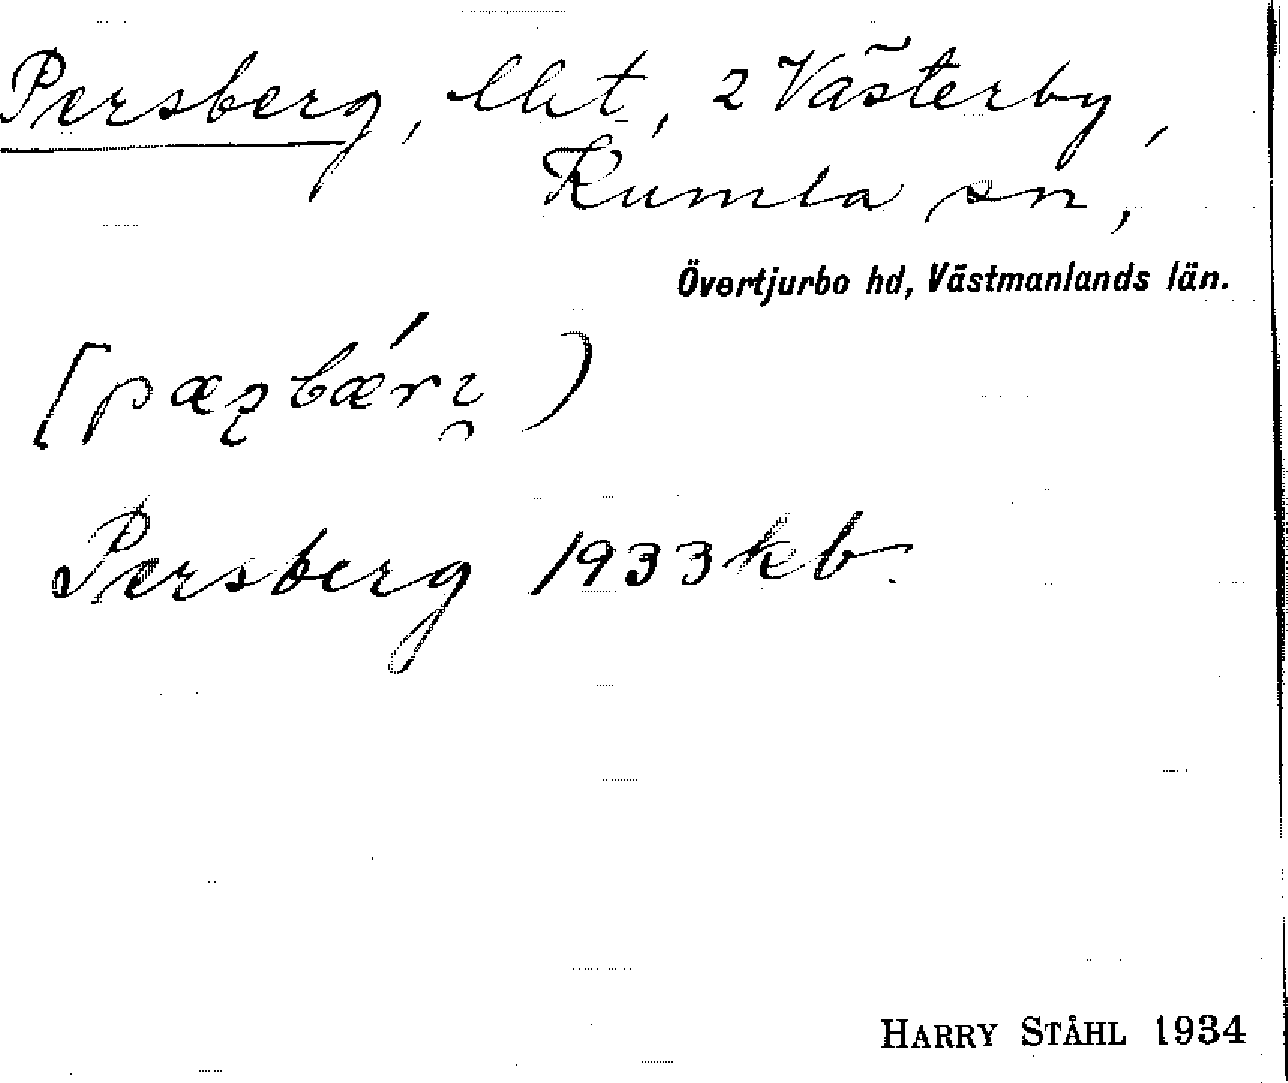 Persberg, lht, 2 Västerby,
Kumla sn,
Övertjurbo hd, Västmanlands län.
Persberg 1933 kb.
HARRY STÅHL 1934